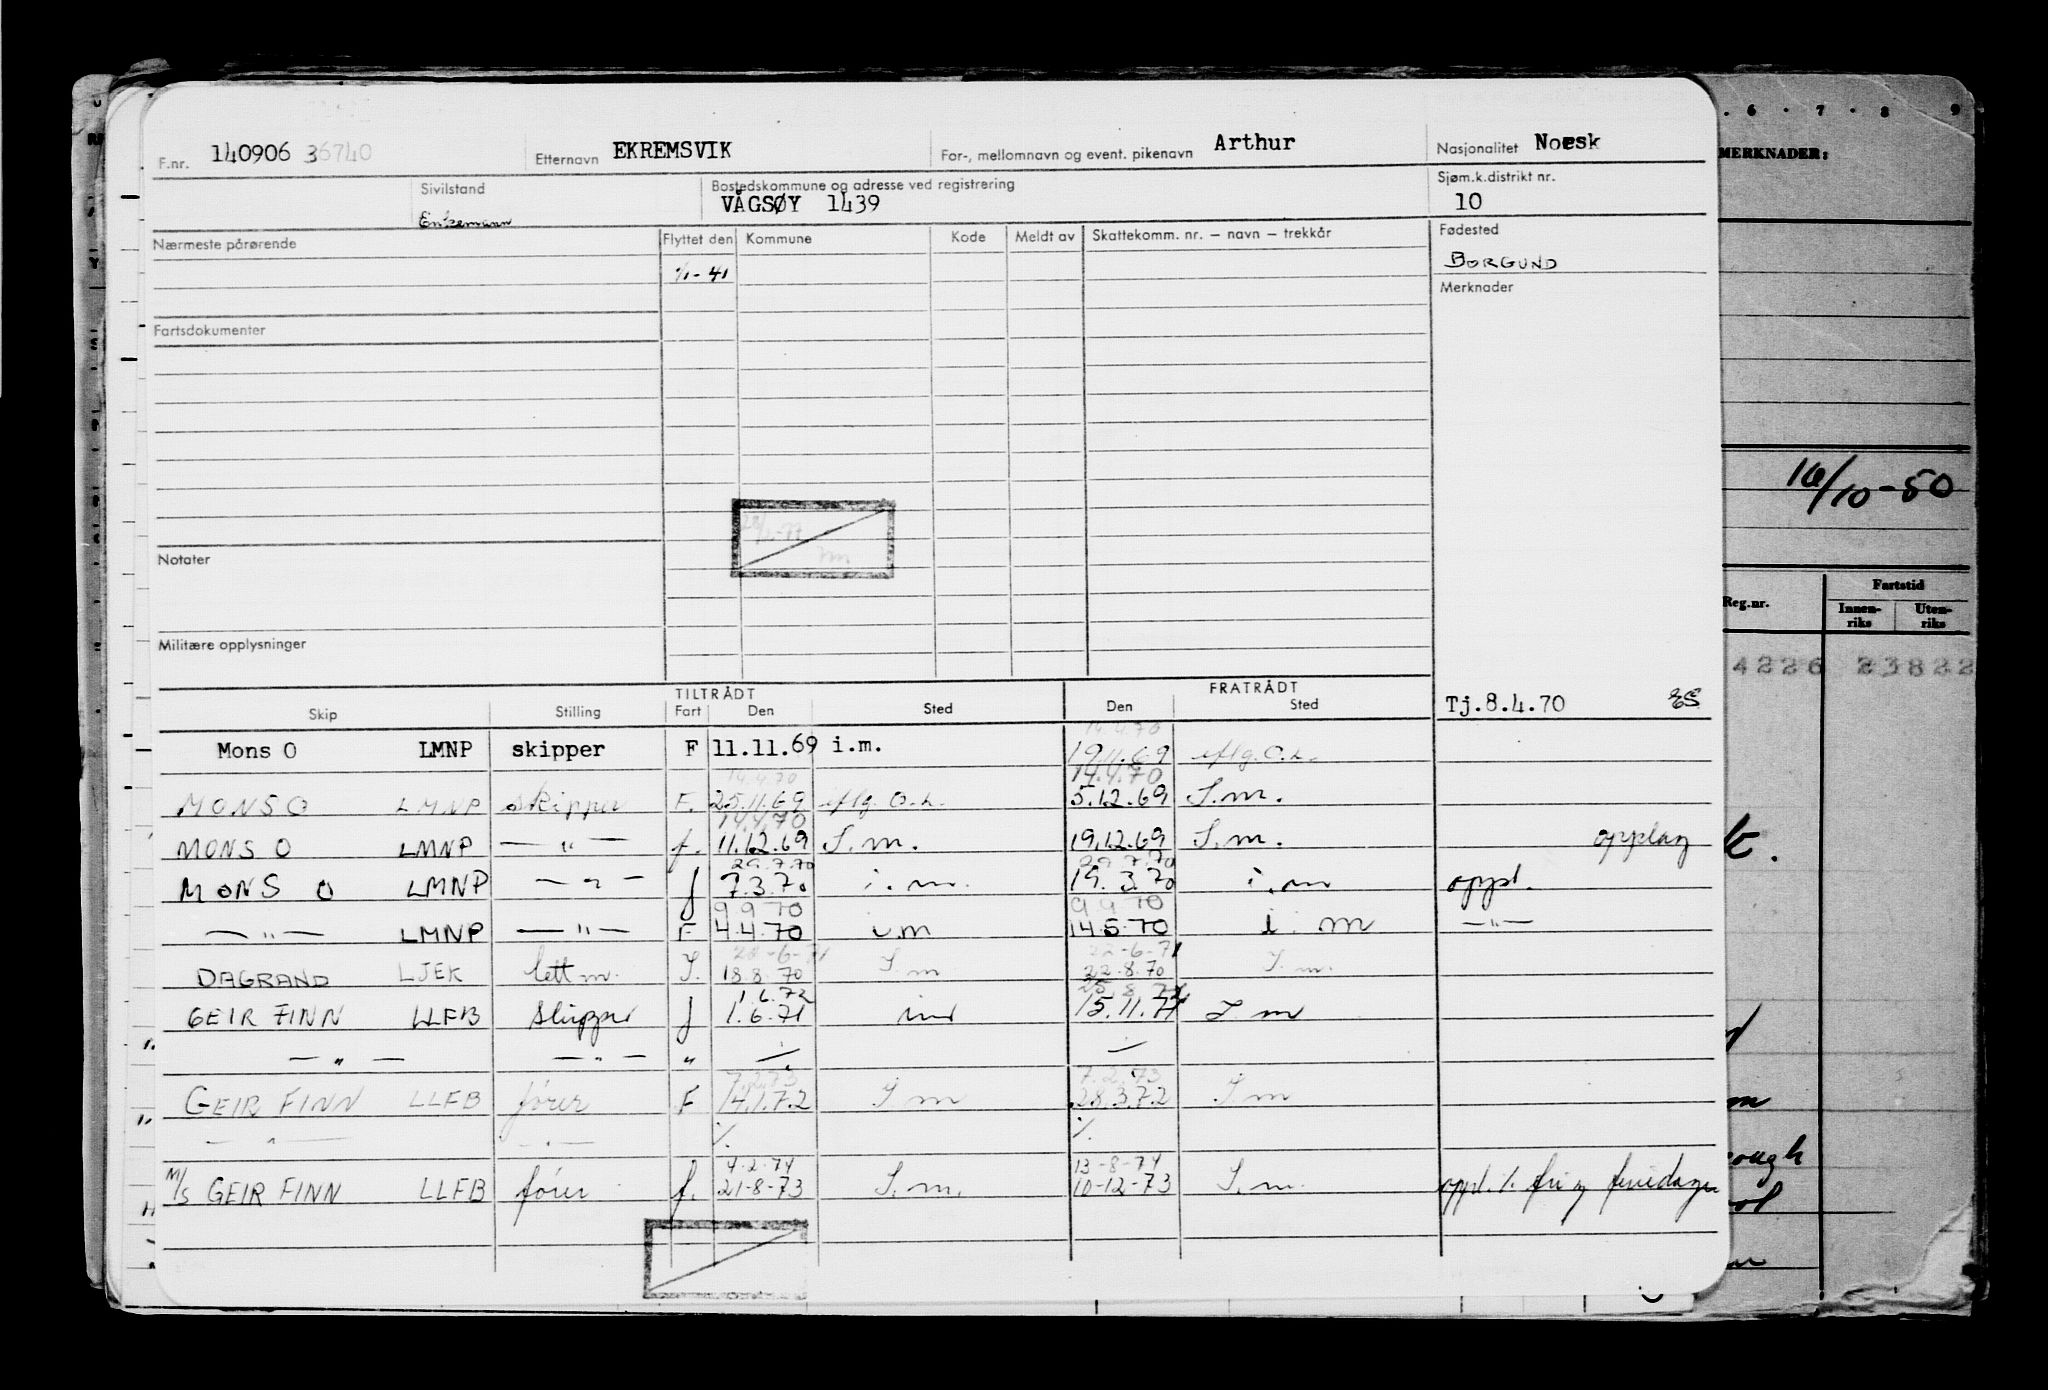 F.nr. 140906 36740 Etternavn EKREMSVIK For-, mellomnavn og event. pikenavn Arthur Nasjonalitet Norsk
Sivilstand Enkemann Bostedskommune og adresse ved registrering VÅGSØY 1439 Sjøm.k.distrikt nr. 10
Nærmeste pårørende Flyttet den Kommune Kode Meldt av Skattekomm. nr. – navn – trekkår Fødested
BORGUND
1/1-41
Merknader
Fartsdokumenter
Notater
Militære opplysninger
TILTRÅDT FRATRÅDT
Skip Stilling Fart Den Sted Den Sted Tj.8.4.70 ES
14.4.70
Mons O LMNP skipper F 11.11.69 i.m. 19.11.69 eflg. O.L.
14.4.70 14.4.70
MONS O LMNP skipper F. 25.11.69 eflg. O.L. 5.12.69 I.m.
14.4.70
MONS O LMNP — " — f. 11.12.69 I.m. 19.12.69 I.m. opplag
29.7.70 29.7.70
MONS O LMNP — " — f 7.3.70 i.m. 19.3.70 i.m oppl.
9.9.70 9.9.70
— " — LMNP — " — F 4.4.70 i.m 14.5.70 i.m — " —
22-6-71
DAGRAND LJEK lettm. I. 18.8.70 I.m 22.8.70 I.m.
1.6.72
GEIR FINN LLFB skipper f 1.6.71 im 15.11.71 I m
— " — — " — "
7.2.73 7.2.73
GEIR FINN LLFB fører F 14.1.72 I m 28.3.72 I.m
— " — — " —
4-2-74 13-8-74
M/S GEIR FINN LLFB fører f. 21-8-73 I.m. 10-12-73 I.m. oppl.
6 7 8 9
MERKNADER:
16/10-50
Reg.nr. Fartstid
Innenriks Utenriks
4226 23822